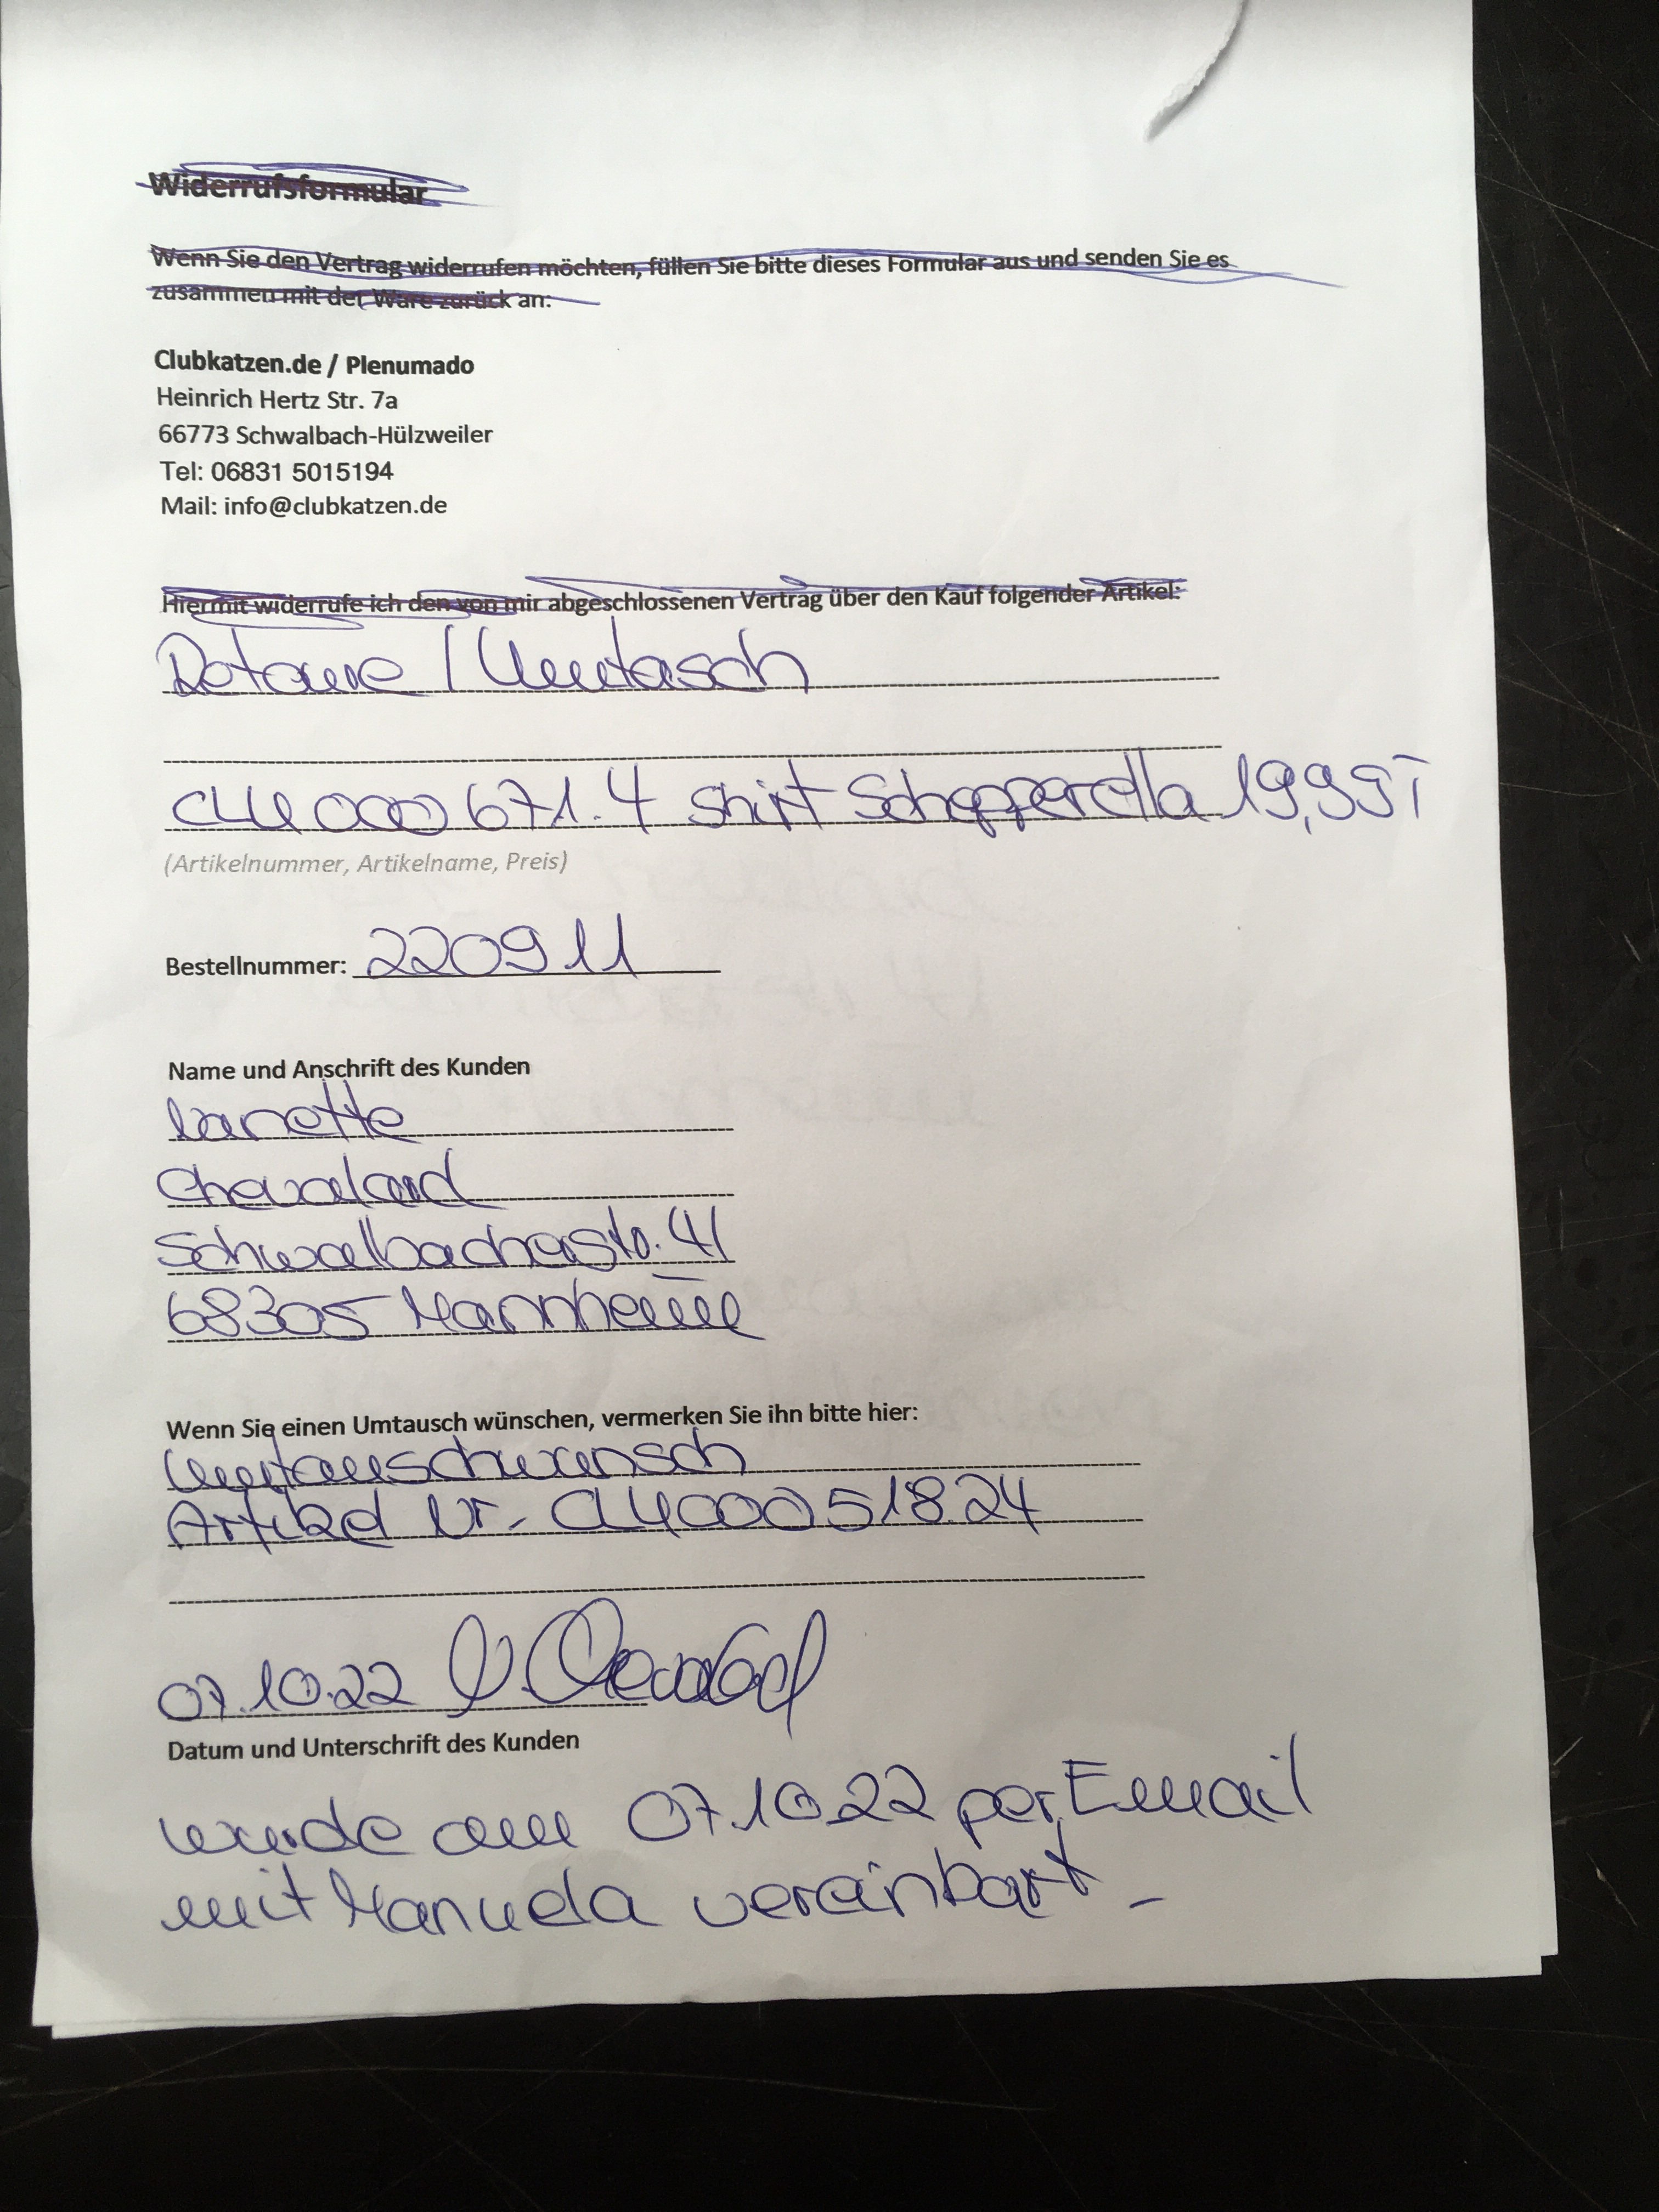 Widerrufsformular
Wenn Sie den Vertrag widerrufen möchten, füllen Sie bitte dieses Formular aus und senden Sie es
zusammen mit der Ware zurück an:
Clubkatzen.de / Plenumado
Heinrich Hertz Str. 7a
66773 Schwalbach-Hülzweiler
Tel: 06831 5015194
Mail: info@clubkatzen.de
Hiermit widerrufe ich den von mir abgeschlossenen Vertrag über den Kauf folgender Artikel:
Retoure / Umtasch
000671.4 Shirt 19,99
(Artikelnummer, Artikelname, Preis)
Bestellnummer: 220911
Name und Anschrift des Kunden
Schwalbacherstr. 41
68305 Mannheim
Wenn Sie einen Umtausch wünschen, vermerken Sie ihn bitte hier:
Umtauschwunsch
Artikel Nr.
07.10.22
Datum und Unterschrift des Kunden
wurde am 07.10.22 per Email
mit Manuela vereinbart